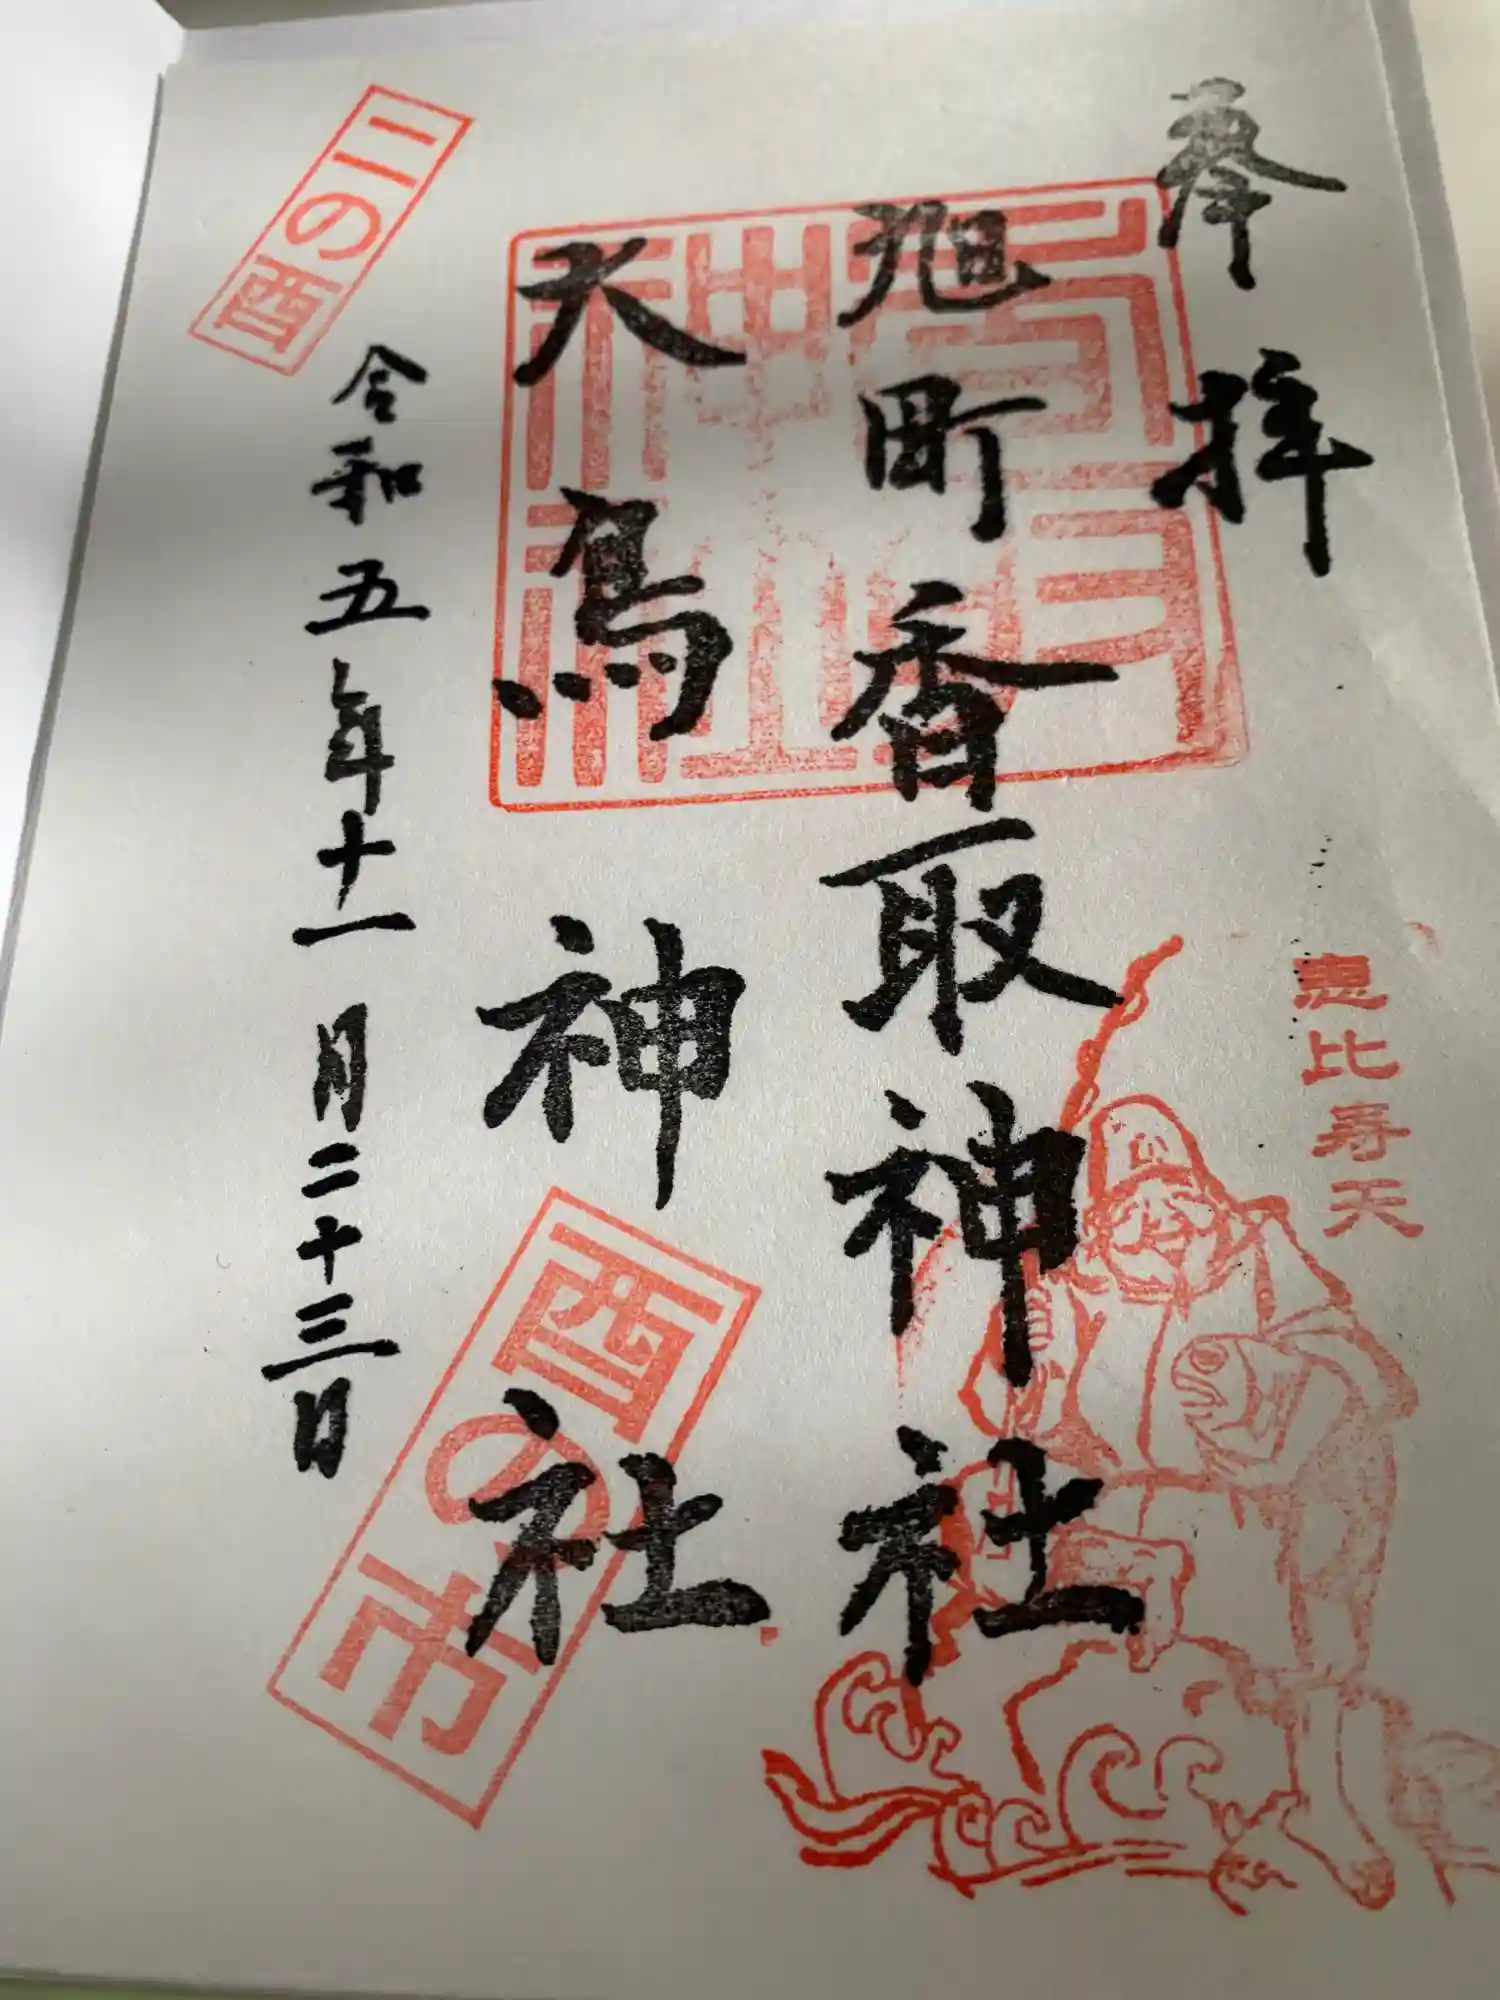 奉拝
旭町香取神社
大鳥神社
令和五年十一月二十三日
二の酉
酉の市
恵比寿天